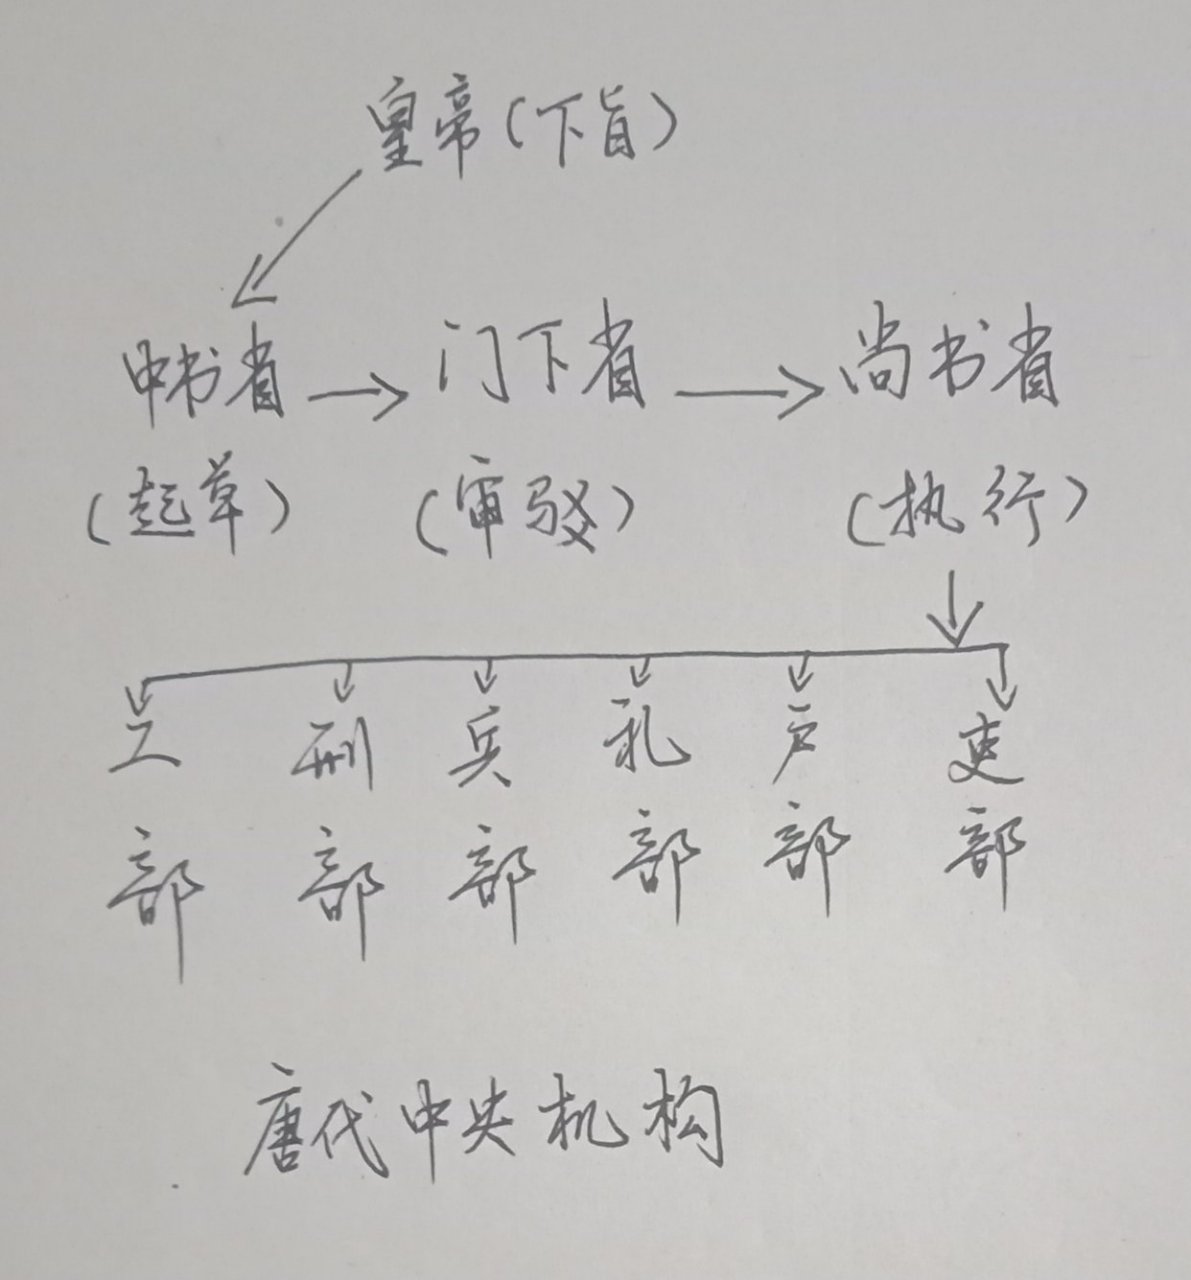 皇帝(下旨)
中书省 → 门下省 → 尚书省
(起草) (审驳) (执行)
工部 刑部 兵部 礼部 户部 吏部
唐代中央机构